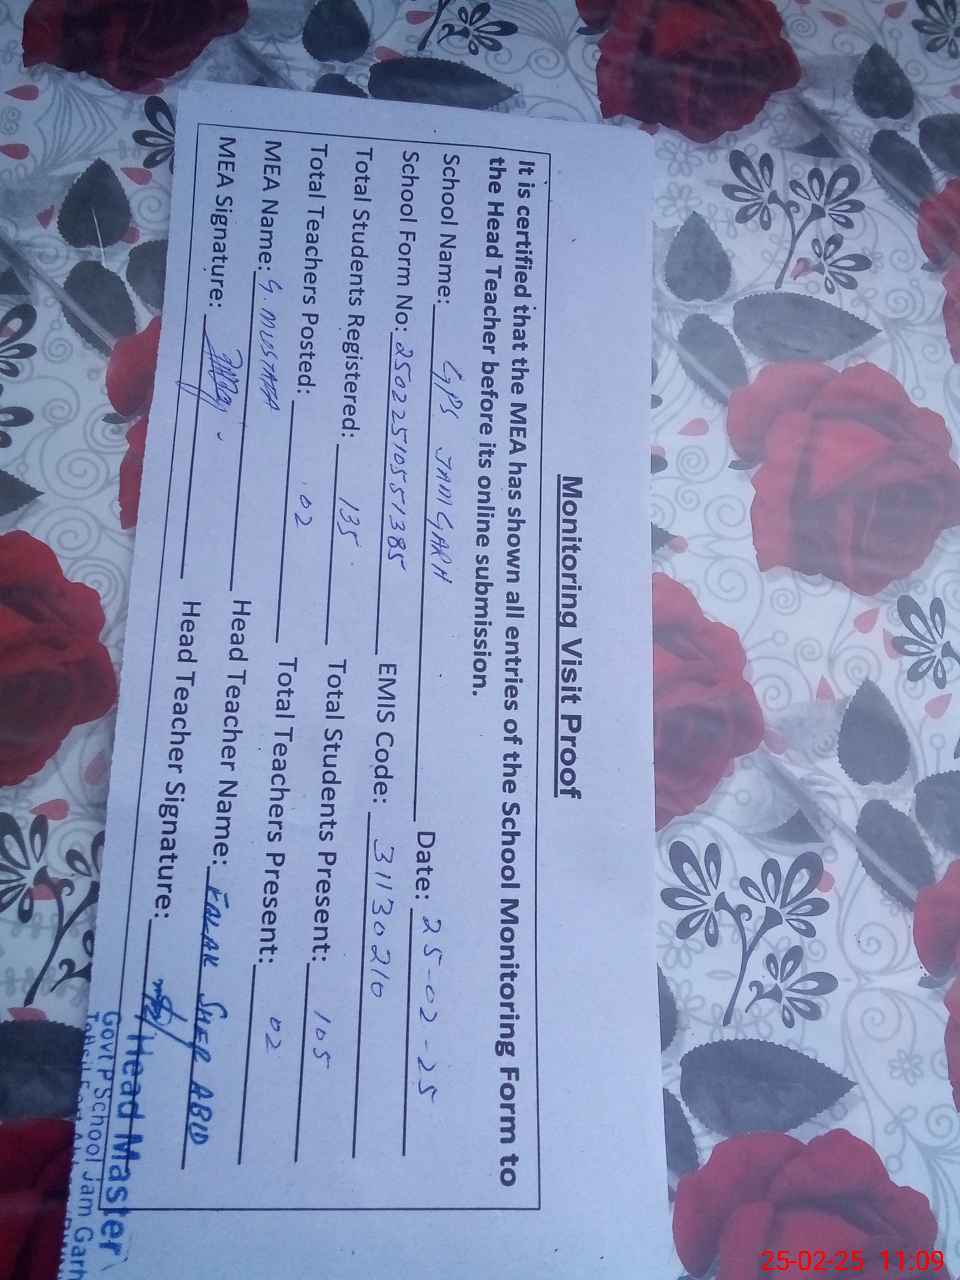 Monitoring Visit Proof
It is certified that the MEA has shown all entries of the School Monitoring Form to
the Head Teacher before its online submission.
School Name: GPS JAM GARH Date: 25-02-25
School Form No: 25022510551385 EMIS Code: 31130210
Total Students Registered: 135 Total Students Present: 105
Total Teachers Posted: 02 Total Teachers Present: 02
MEA Name: G. MUSTAFA Head Teacher Name: SHER ABID
MEA Signature: Head Teacher Signature:
Head Master
Govt P School Jam Garh
25-02-25 11:09